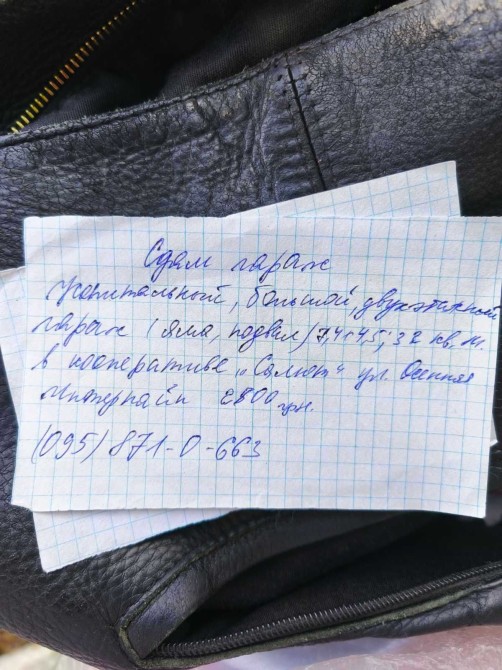 Сдам гараж
Капитальный, большой, двухэтажный
гараж (яма, подвал) 7,4х4,5; 32 кв. м.
в кооперативе "Салют" ул. Осенняя
2800 грн.
(095) 871-0-663